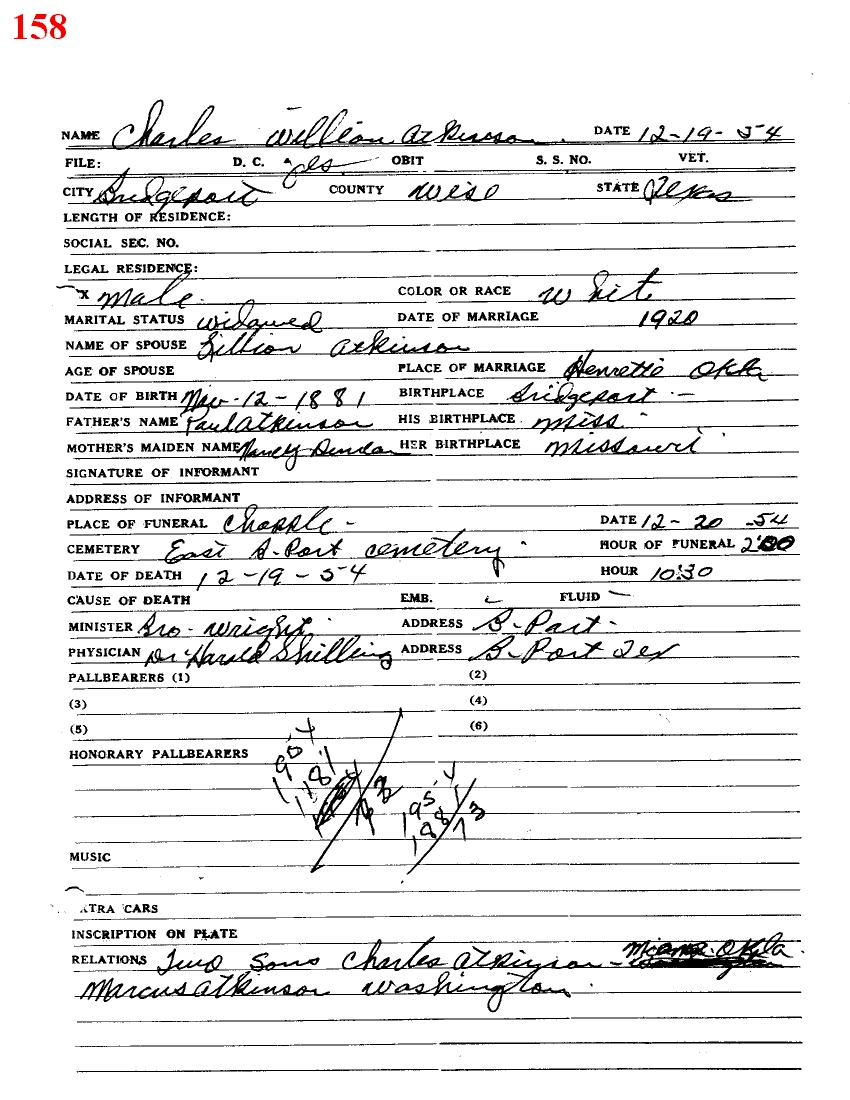 158
NAME Charles William Atkinson. DATE 12-19-54
FILE: D. C. yes OBIT S. S. NO. VET.
CITY Bridgeport COUNTY Wise STATE Texas
LENGTH OF RESIDENCE:
SOCIAL SEC. NO.
LEGAL RESIDENCE:
X Male. COLOR OR RACE Whit
MARITAL STATUS widowed DATE OF MARRIAGE 1920
NAME OF SPOUSE Lillion Atkinson
AGE OF SPOUSE PLACE OF MARRIAGE Henrettie Okla
DATE OF BIRTH 12-1881 BIRTHPLACE Bridgeport -
FATHER'S NAME Paul Atkinson HIS BIRTHPLACE Miss -
MOTHER'S MAIDEN NAME Nancy HER BIRTHPLACE Missouri
SIGNATURE OF INFORMANT
ADDRESS OF INFORMANT
PLACE OF FUNERAL Chapple - DATE 12-20-54
CEMETERY East B-Port cemetery. HOUR OF FUNERAL 2:00
DATE OF DEATH 12-19-54 HOUR 10:30
CAUSE OF DEATH EMB. FLUID -
MINISTER Bro- Wright. ADDRESS B-Port-
PHYSICIAN Dr Harold Shilling ADDRESS B-Port Tex
PALLBEARERS (1) (2)
(3) (4)
(5) (6)
HONORARY PALLBEARERS
1954
1881
73
1954
1881
73
MUSIC
XTRA CARS
INSCRIPTION ON PLATE
RELATIONS Two Sons Charles Atkinson - Miama. Okla.
Marcus Atkinson Washington.